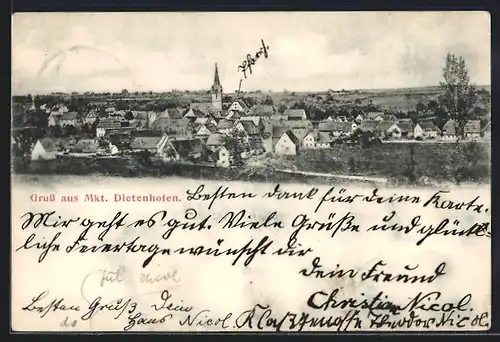 Gruß aus Mkt. Dietenhofen.
Besten dank für deine Karte.
Mir geht es gut. Viele Grüße und glückl-
liche feiertage wünscht dir
dein Freund
Christian Nicol.
Besten Gruß Dein
Hans Nicol. Klaßgenoße Theodor Nicol.